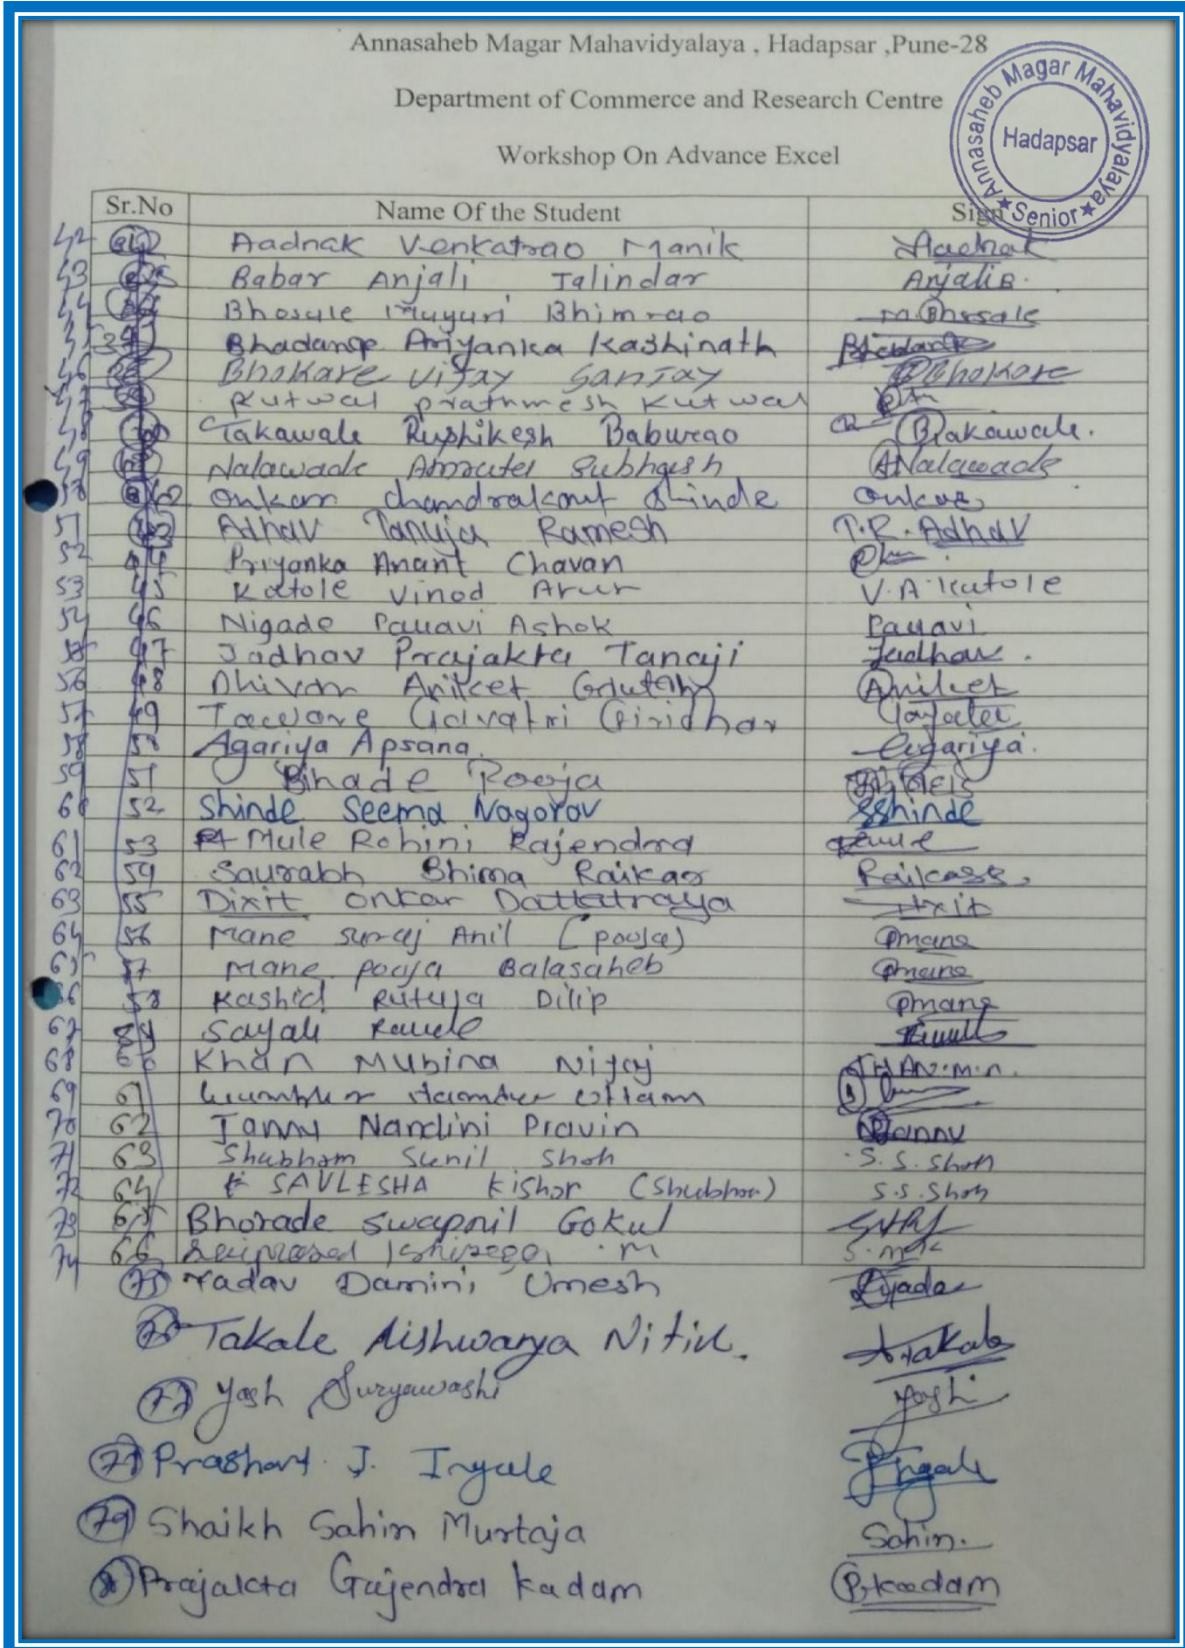 Annasaheb Magar Mahavidyalaya , Hadapsar ,Pune-28
Department of Commerce and Research Centre
Workshop On Advance Excel
Annasaheb Magar Mahavidyalaya ★ Senior ★
Hadapsar
Sr.No Name Of the Student Sign
42 Aadnak Venkatrao Manik Aadnak
43 Babar Anjali Jalindar AnjaliB.
44 Bhosale Mayuri Bhimrao M.Bhosale
45 Bhadange Priyanka Kashinath
46 Bhokare Vijay Sanjay Bhokare
47 Kutwal prathmesh Kutwal
48 Takawale Rushikesh Baburao Takawale.
49 Nalawade Amruta Subhash ANalawade
50 Onkar chandrakant Shinde Onkar
51 Adhav Tanuja Ramesh T.R. Adhav
52 44 Priyanka Anant Chavan
53 45 Katole Vinod Arun V.A. Katole
54 46 Nigade Pallavi Ashok Pallavi
55 47 Jadhav Prajakta Tanaji Jadhav.
56 48 Dhivar Aniket Gautam Aniket
57 49 Taware Gayatri Giridhar Gayatri
58 50 Agariya Apsana. Agariya.
59 51 Bhade Pooja
60 52 Shinde Seema Nagorav SShinde
61 53 Mule Rohini Rajendra
62 54 Saurabh Bhima Raikar
63 55 Dixit Onkar Dattatraya Dixit
64 56 Mane Suraj Anil (pooja) Pmane
65 57 Mane pooja Balasaheb Pmane
66 58 Kashid Rutuja Dilip Pmane
67 59 Sayali
68 60 Khan Mubina KHAN.M.N.
69 61 Uttam
70 62 Jannu Nandini Pravin Jannu
71 63 Shubham Sunil Shah S.S. Shah
72 64 SAVLESHA Kishor (Shubham) S.S. Shah
73 65 Bhorade Swapnil Gokul
74 66 M
75 Yadav Damini Umesh
76 Takale Aishwarya Nitin. Takale
77 Yash Suryawashi Yash
78 Prashant J. Ingale Ingale
79 Shaikh Sahin Murtaja Sahin.
Prajakta Gajendra Kadam P.Kadam